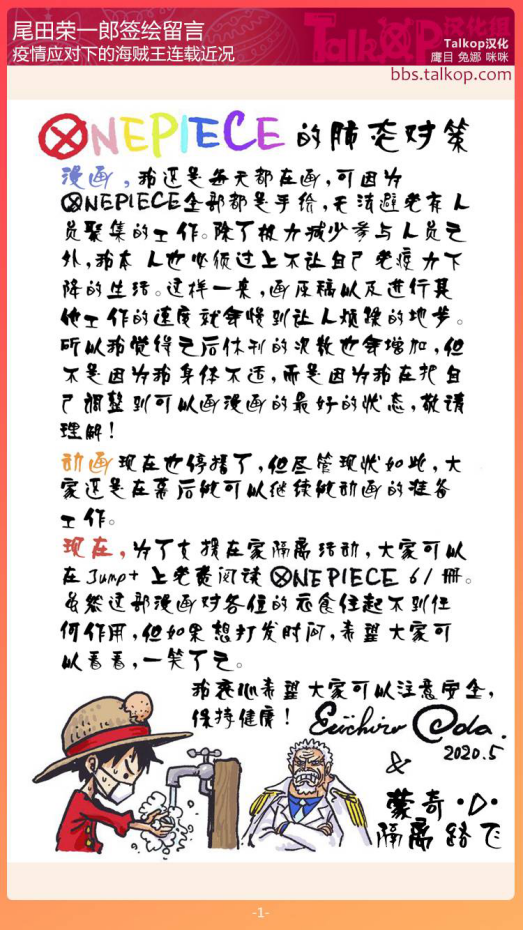 尾田荣一郎签绘留言
疫情应对下的海贼王连载近况
TalkOP汉化组
Talkop汉化
鹰目 兔娜 咪咪
bbs.talkop.com
ONEPIECE的肺炎对策
漫画，我还是每天都在画，可因为
ONEPIECE全部都是手绘，无法避免有人
员聚集的工作。除了极力减少参与人员之
外，我本人也必须过上不让自己免疫力下
降的生活。这样一来，画原稿以及进行其
他工作的速度就会慢到让人烦躁的地步。
所以我觉得之后休刊的次数也会增加，但
不是因为我身体不适，而是因为我在把自
己调整到可以画漫画的最好的状态，敬请
理解！
动画现在也停播了，但尽管现状如此，大
家还是在幕后做可以继续做动画的准备
工作。
现在，为了支援在家隔离活动，大家可以
在Jump+上免费阅读ONEPIECE 61册。
虽然这部漫画对各位的衣食住起不到任
何作用，但如果想打发时间，希望大家可
以看看，一笑了之。
我衷心希望大家可以注意安全，
保持健康！ Eiichiro Oda.
2020.5
&
蒙奇·D·
隔离路飞
-1-